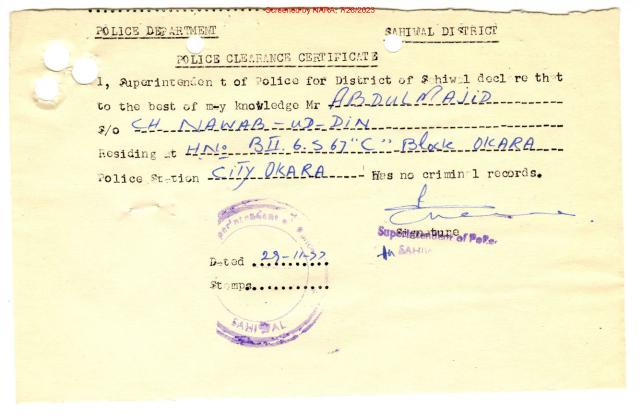 Screened by NARA, 7/26/2023
POLICE DEPARTMENT SAHIWAL DISTRICT
POLICE CLEARANCE CERTIFICATE
I, Superintendent of Police for District of Sahiwal declare that
to the best of my knowledge Mr ABDUL MAJID
S/o CH NAWAB-UD-DIN
Residing at HNo BII. 6. S 67 "C" Block OKARA
Police Station CITY OKARA Has no criminal records.
Signature
Superintendent of Police
SAHIWAL
Dated
Stamps
SAHIWAL